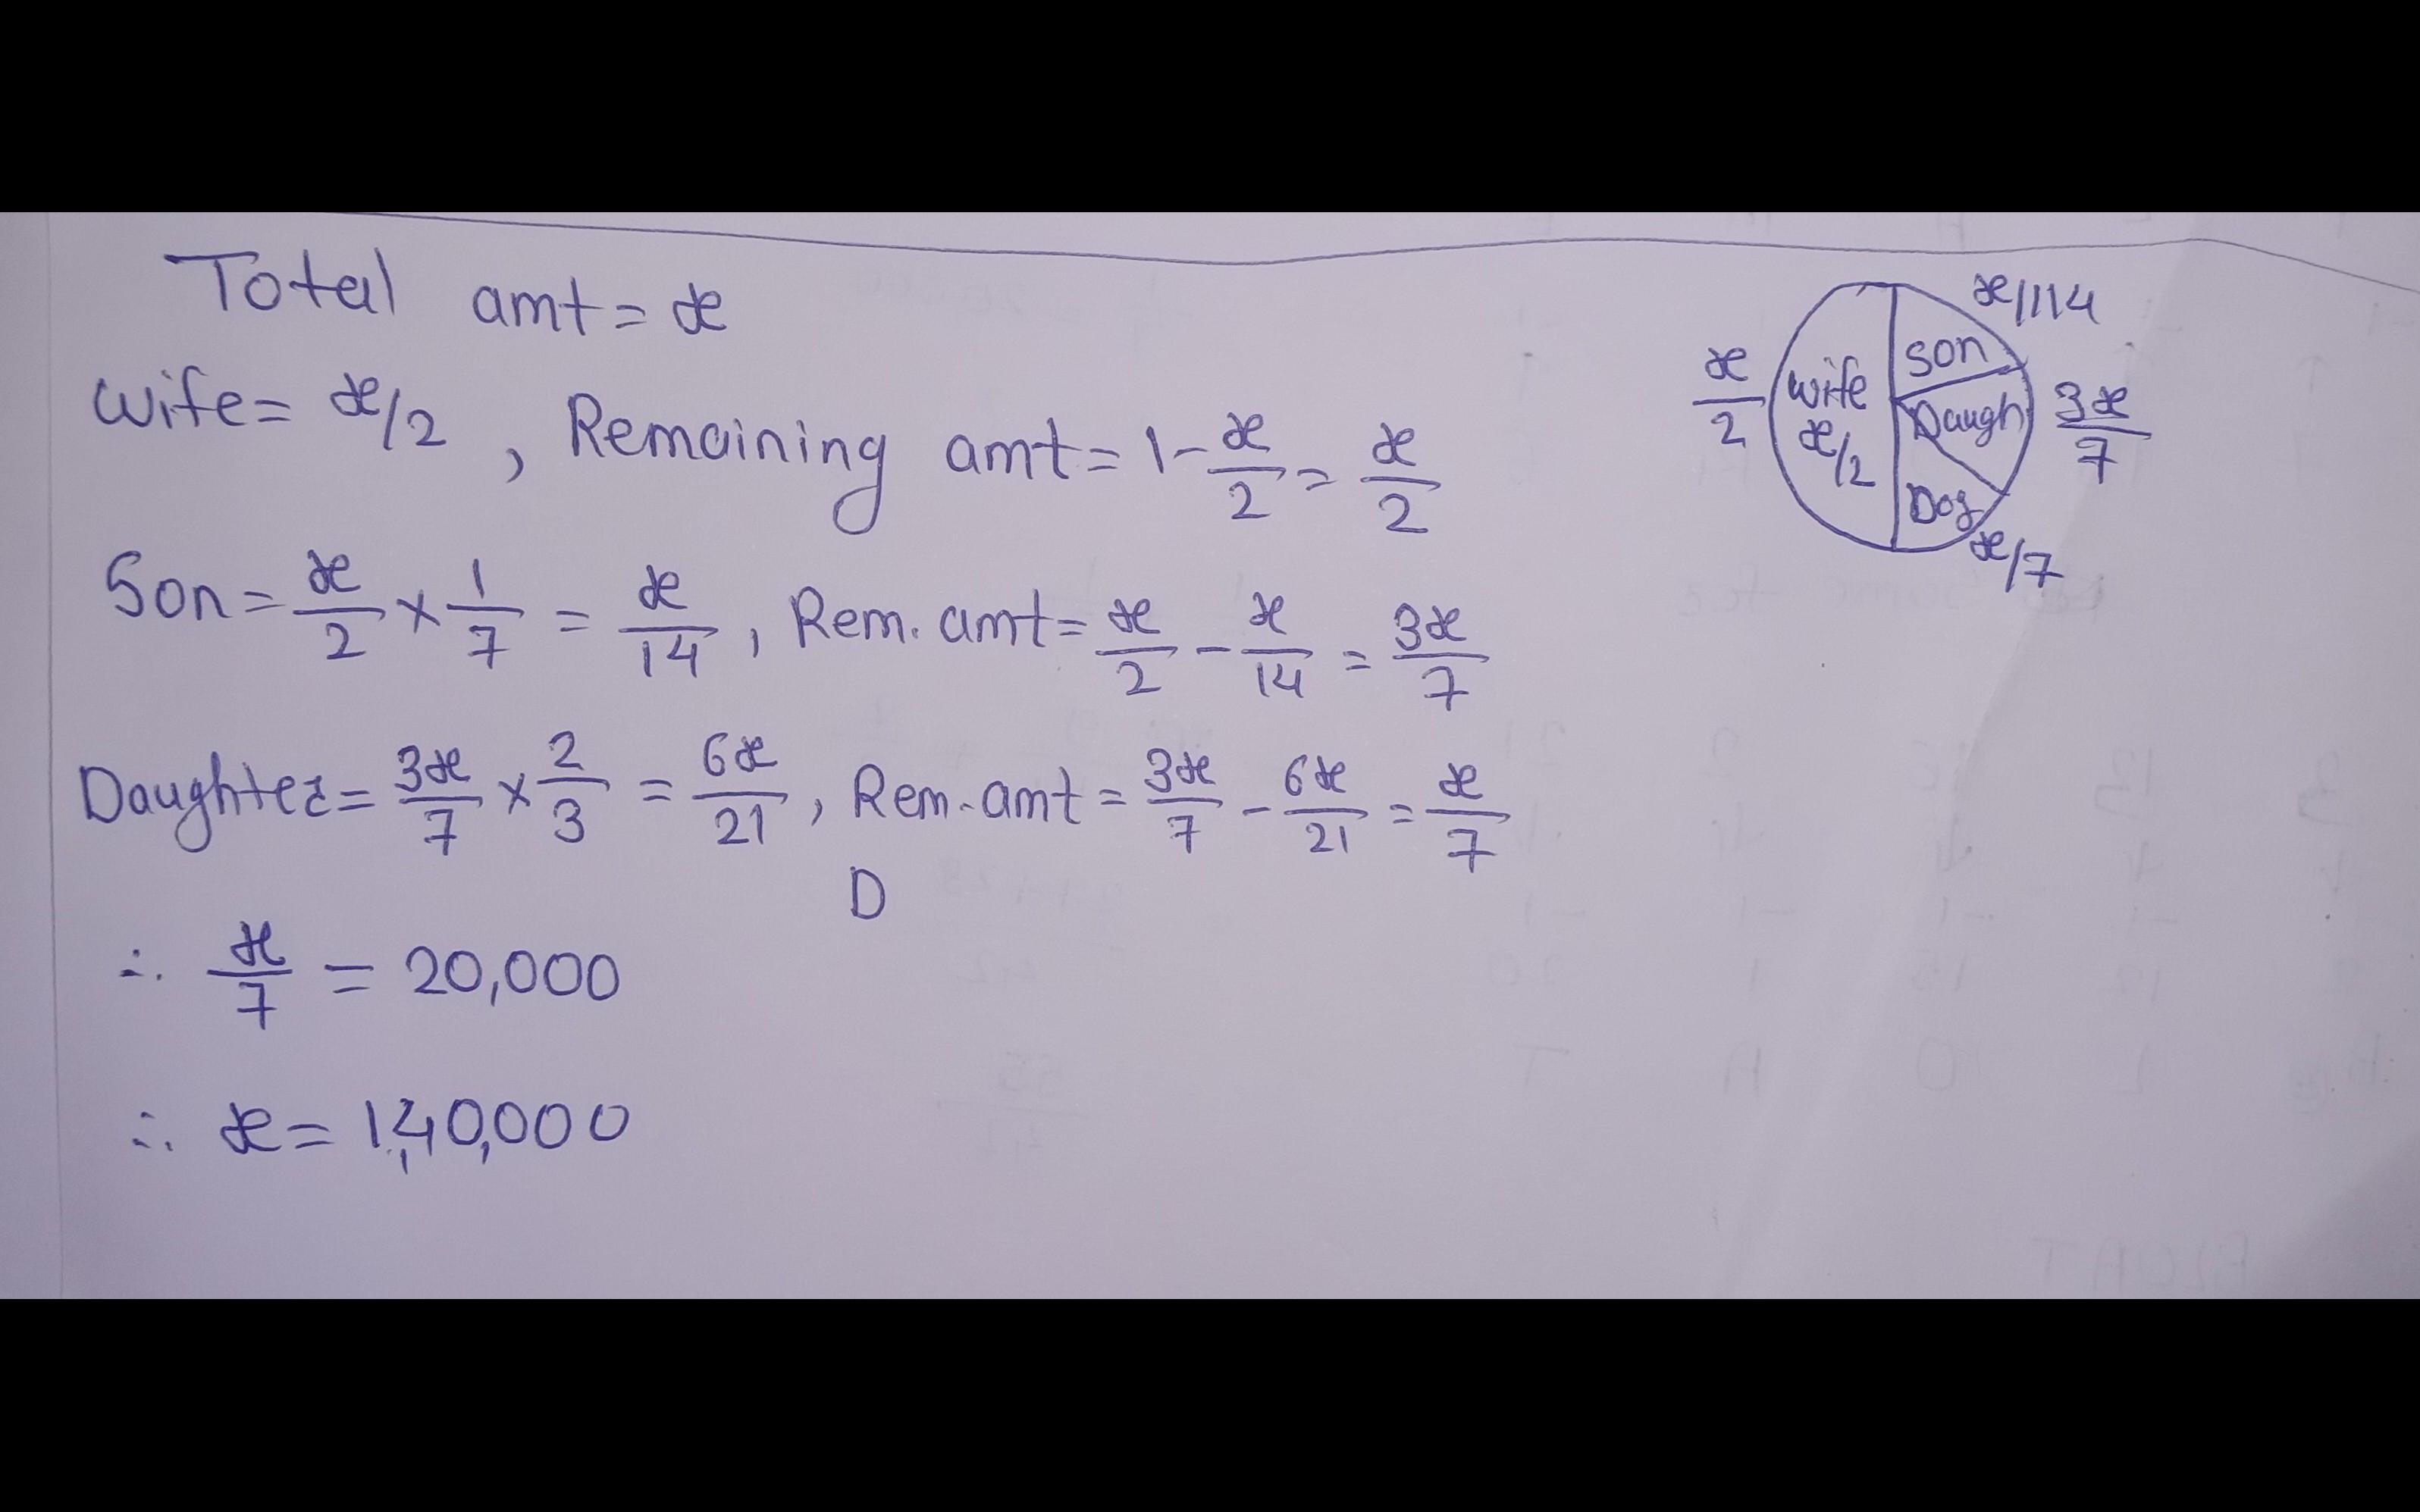 Total amt = x
Wife = x/2 , Remaining amt = 1 - x/2 = x/2
Son = x/2 × 1/7 = x/14 , Rem. amt = x/2 - x/14 = 3x/7
Daughter = 3x/7 × 2/3 = 6x/21 , Rem. amt = 3x/7 - 6x/21 = x/7
D
∴ x/7 = 20,000
∴ x = 1,40,000
x/114
x/2
wife
x/2
son
Daugh
3x/7
Dog
x/7